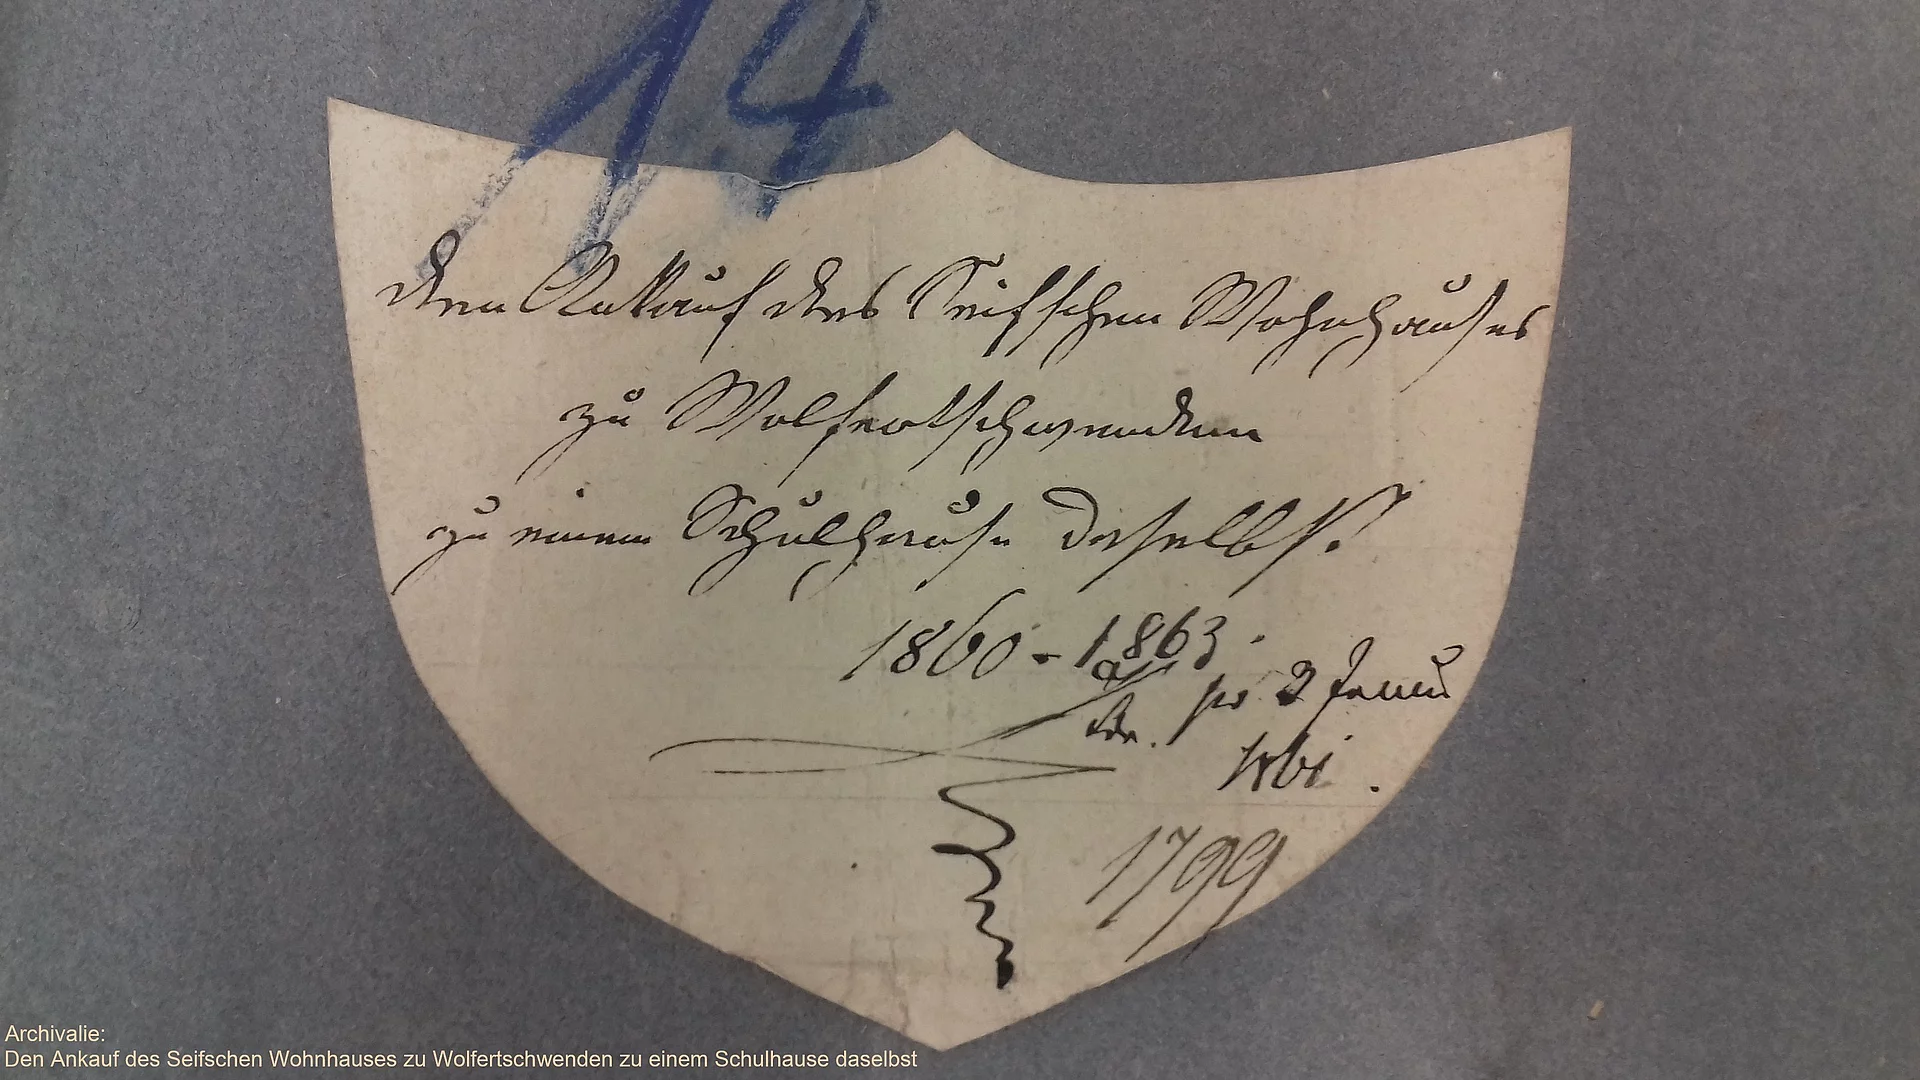 14
Den Ankauf des Seifschen Wohnhauses
zu Wolfertschwenden
zu einem Schulhause daselbst.
1860 - 1863.
pr 2 Janu
1861.
1799
Archivalie:
Den Ankauf des Seifschen Wohnhauses zu Wolfertschwenden zu einem Schulhause daselbst